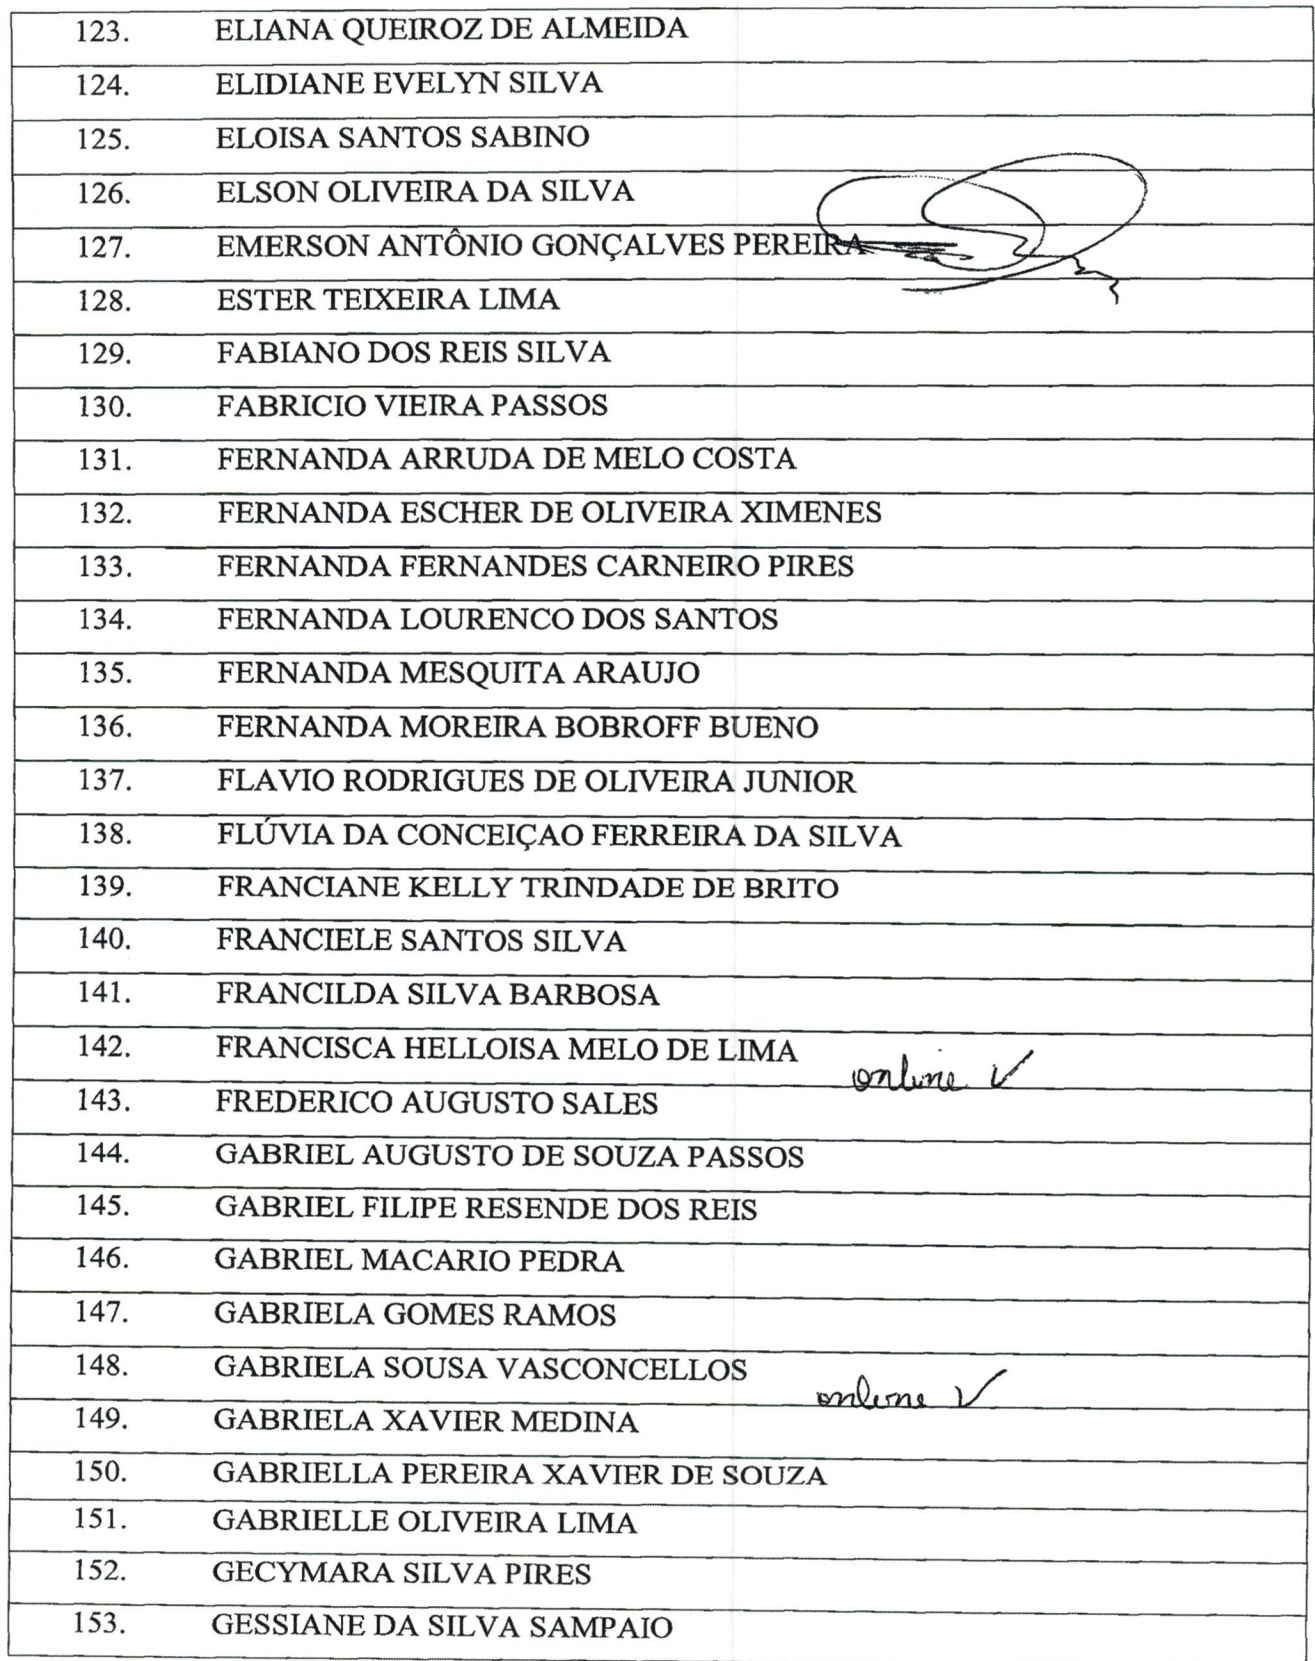 123. ELIANA QUEIROZ DE ALMEIDA
124. ELIDIANE EVELYN SILVA
125. ELOISA SANTOS SABINO
126. ELSON OLIVEIRA DA SILVA
127. EMERSON ANTÔNIO GONÇALVES PEREIRA
128. ESTER TEIXEIRA LIMA
129. FABIANO DOS REIS SILVA
130. FABRICIO VIEIRA PASSOS
131. FERNANDA ARRUDA DE MELO COSTA
132. FERNANDA ESCHER DE OLIVEIRA XIMENES
133. FERNANDA FERNANDES CARNEIRO PIRES
134. FERNANDA LOURENCO DOS SANTOS
135. FERNANDA MESQUITA ARAUJO
136. FERNANDA MOREIRA BOBROFF BUENO
137. FLAVIO RODRIGUES DE OLIVEIRA JUNIOR
138. FLÚVIA DA CONCEIÇAO FERREIRA DA SILVA
139. FRANCIANE KELLY TRINDADE DE BRITO
140. FRANCIELE SANTOS SILVA
141. FRANCILDA SILVA BARBOSA
142. FRANCISCA HELLOISA MELO DE LIMA online ✓
143. FREDERICO AUGUSTO SALES
144. GABRIEL AUGUSTO DE SOUZA PASSOS
145. GABRIEL FILIPE RESENDE DOS REIS
146. GABRIEL MACARIO PEDRA
147. GABRIELA GOMES RAMOS
148. GABRIELA SOUSA VASCONCELLOS online ✓
149. GABRIELA XAVIER MEDINA
150. GABRIELLA PEREIRA XAVIER DE SOUZA
151. GABRIELLE OLIVEIRA LIMA
152. GECYMARA SILVA PIRES
153. GESSIANE DA SILVA SAMPAIO